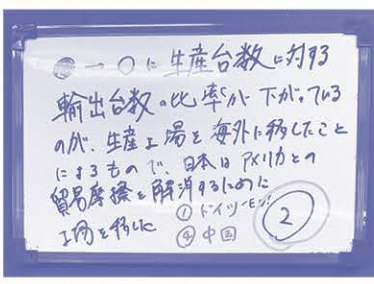 ○に生産台数に対する
輸出台数の比率が下がっている
のが、生産工場を海外に移したこと
によるもので、日本はアメリカとの
貿易摩擦を解消するために
工場を移した
① ドイツ
② 中国
②